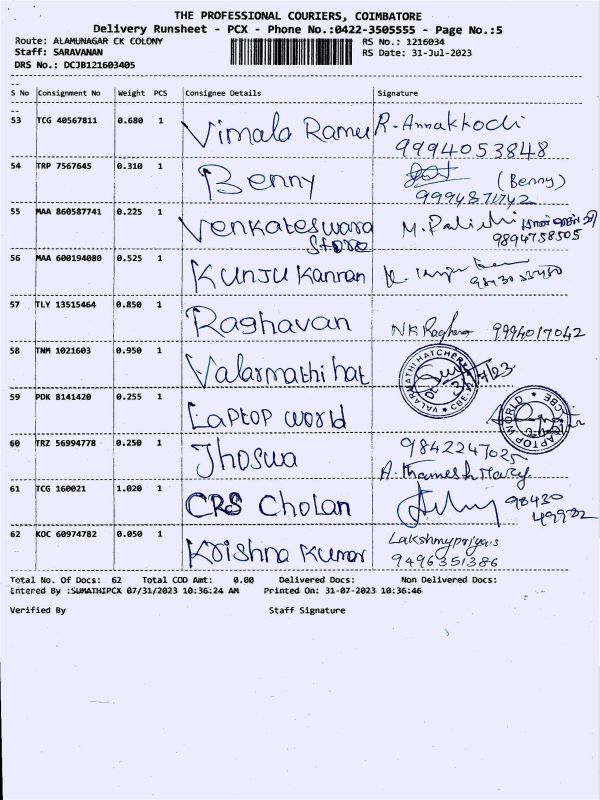 THE PROFESSIONAL COURIERS, COIMBATORE
Delivery Runsheet - PCX - Phone No.:0422-3505555 - Page No.:5
Route: ALAMUNAGAR CK COLONY RS No.: 1216034
Staff: SARAVANAN RS Date: 31-Jul-2023
DRS No.: DCJB121603405
S No Consignment No Weight PCS Consignee Details Signature
53 TCG 40567811 0.680 1 Vimala Ramu R. Annakkodi
9994053848
54 TRP 7567645 0.310 1 Benny (Benny)
9994871742
55 MAA 860587741 0.225 1 Venkateswara
Store 9894758505
56 MAA 600194080 0.525 1 Kunju Kannan
57 TLY 13515464 0.850 1 Raghavan NK Raghavan 9994017042
58 TNM 1021603 0.950 1 Valarmathi hat
VALARMATHI HATCHERY CBE
59 PDK 8141420 0.255 1 Laptop world
LAPTOP WORLD CBE
60 TRZ 56994778 0.250 1 Jhoswa 9842247025
A. Thamesh Mary
61 TCG 160021 1.020 1 CRS Cholan 98430
49932
62 KOC 60974782 0.050 1 Krishna Kumar Lakshmypriya.s
9496351386
Total No. Of Docs: 62 Total COD Amt: 0.00 Delivered Docs: Non Delivered Docs:
Entered By :SUMATHIPCX 07/31/2023 10:36:24 AM Printed On: 31-07-2023 10:36:46
Verified By Staff Signature